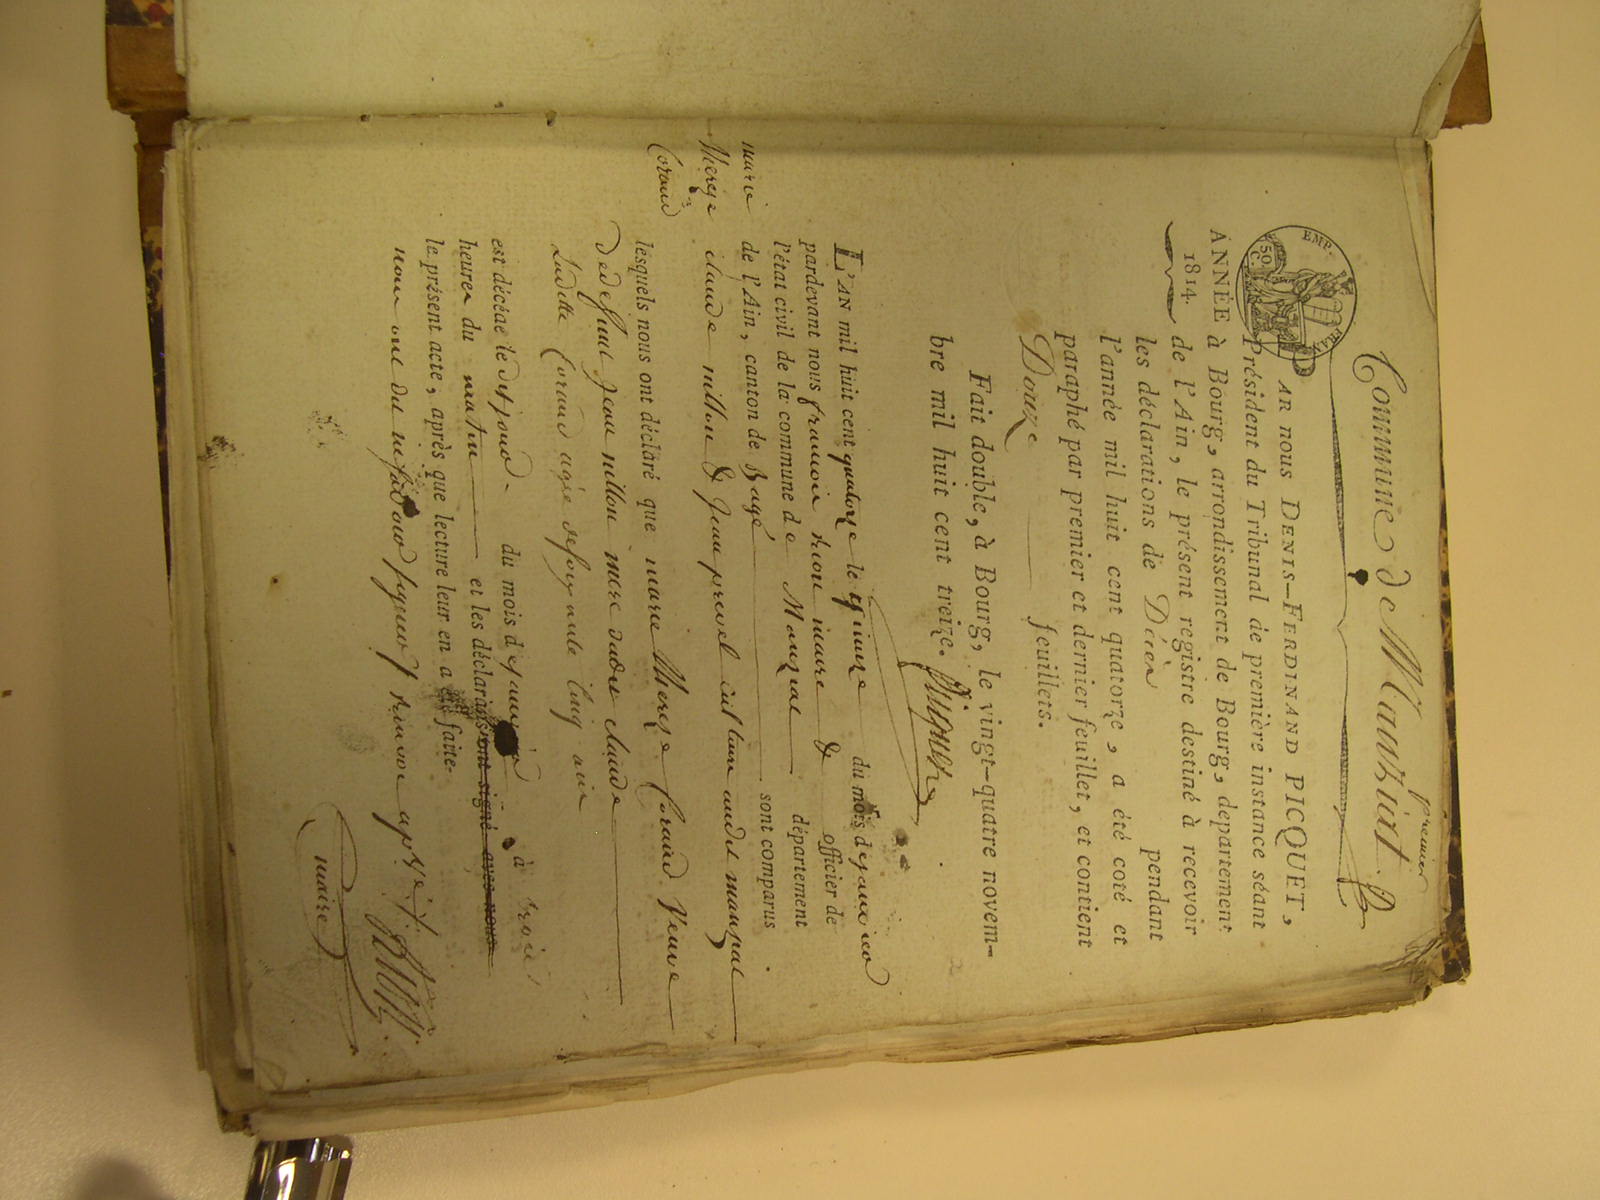 premier
Commune de Manziat
EMP. FRAN
50 C.
PAR nous DENIS-FERDINAND PICQUET,
Président du Tribunal de première instance séant
ANNÉE à Bourg, arrondissement de Bourg, département
1814. de l'Ain, le présent registre destiné à recevoir
les déclarations de Décès pendant
l'année mil huit cent quatorze, a été coté et
paraphé par premier et dernier feuillet, et contient
Douze feuillets.
Fait double, à Bourg, le vingt-quatre novem-
bre mil huit cent treize. Picquet
L'AN mil huit cent quatorze le quinze du mois de janvier
pardevant nous françois maire & officier de
l'état civil de la commune de Manziat département
marie de l'Ain, canton de Bagé sont comparus
therese claude nillon & jean prevel cultivateur audit manziat
Coraud
lesquels nous ont déclaré que marie therese Coraud Veuve
de defunt jean nillon mere dudit claude
Ladite Coraud agée de soixante cinq ans
est décédée le dit jour du mois de janvier à trois
heures du matin et les déclarans ont signé avec nous
le présent acte, après que lecture leur en a été faite.
nous ont dit ne savoir signer de ce requis
maire